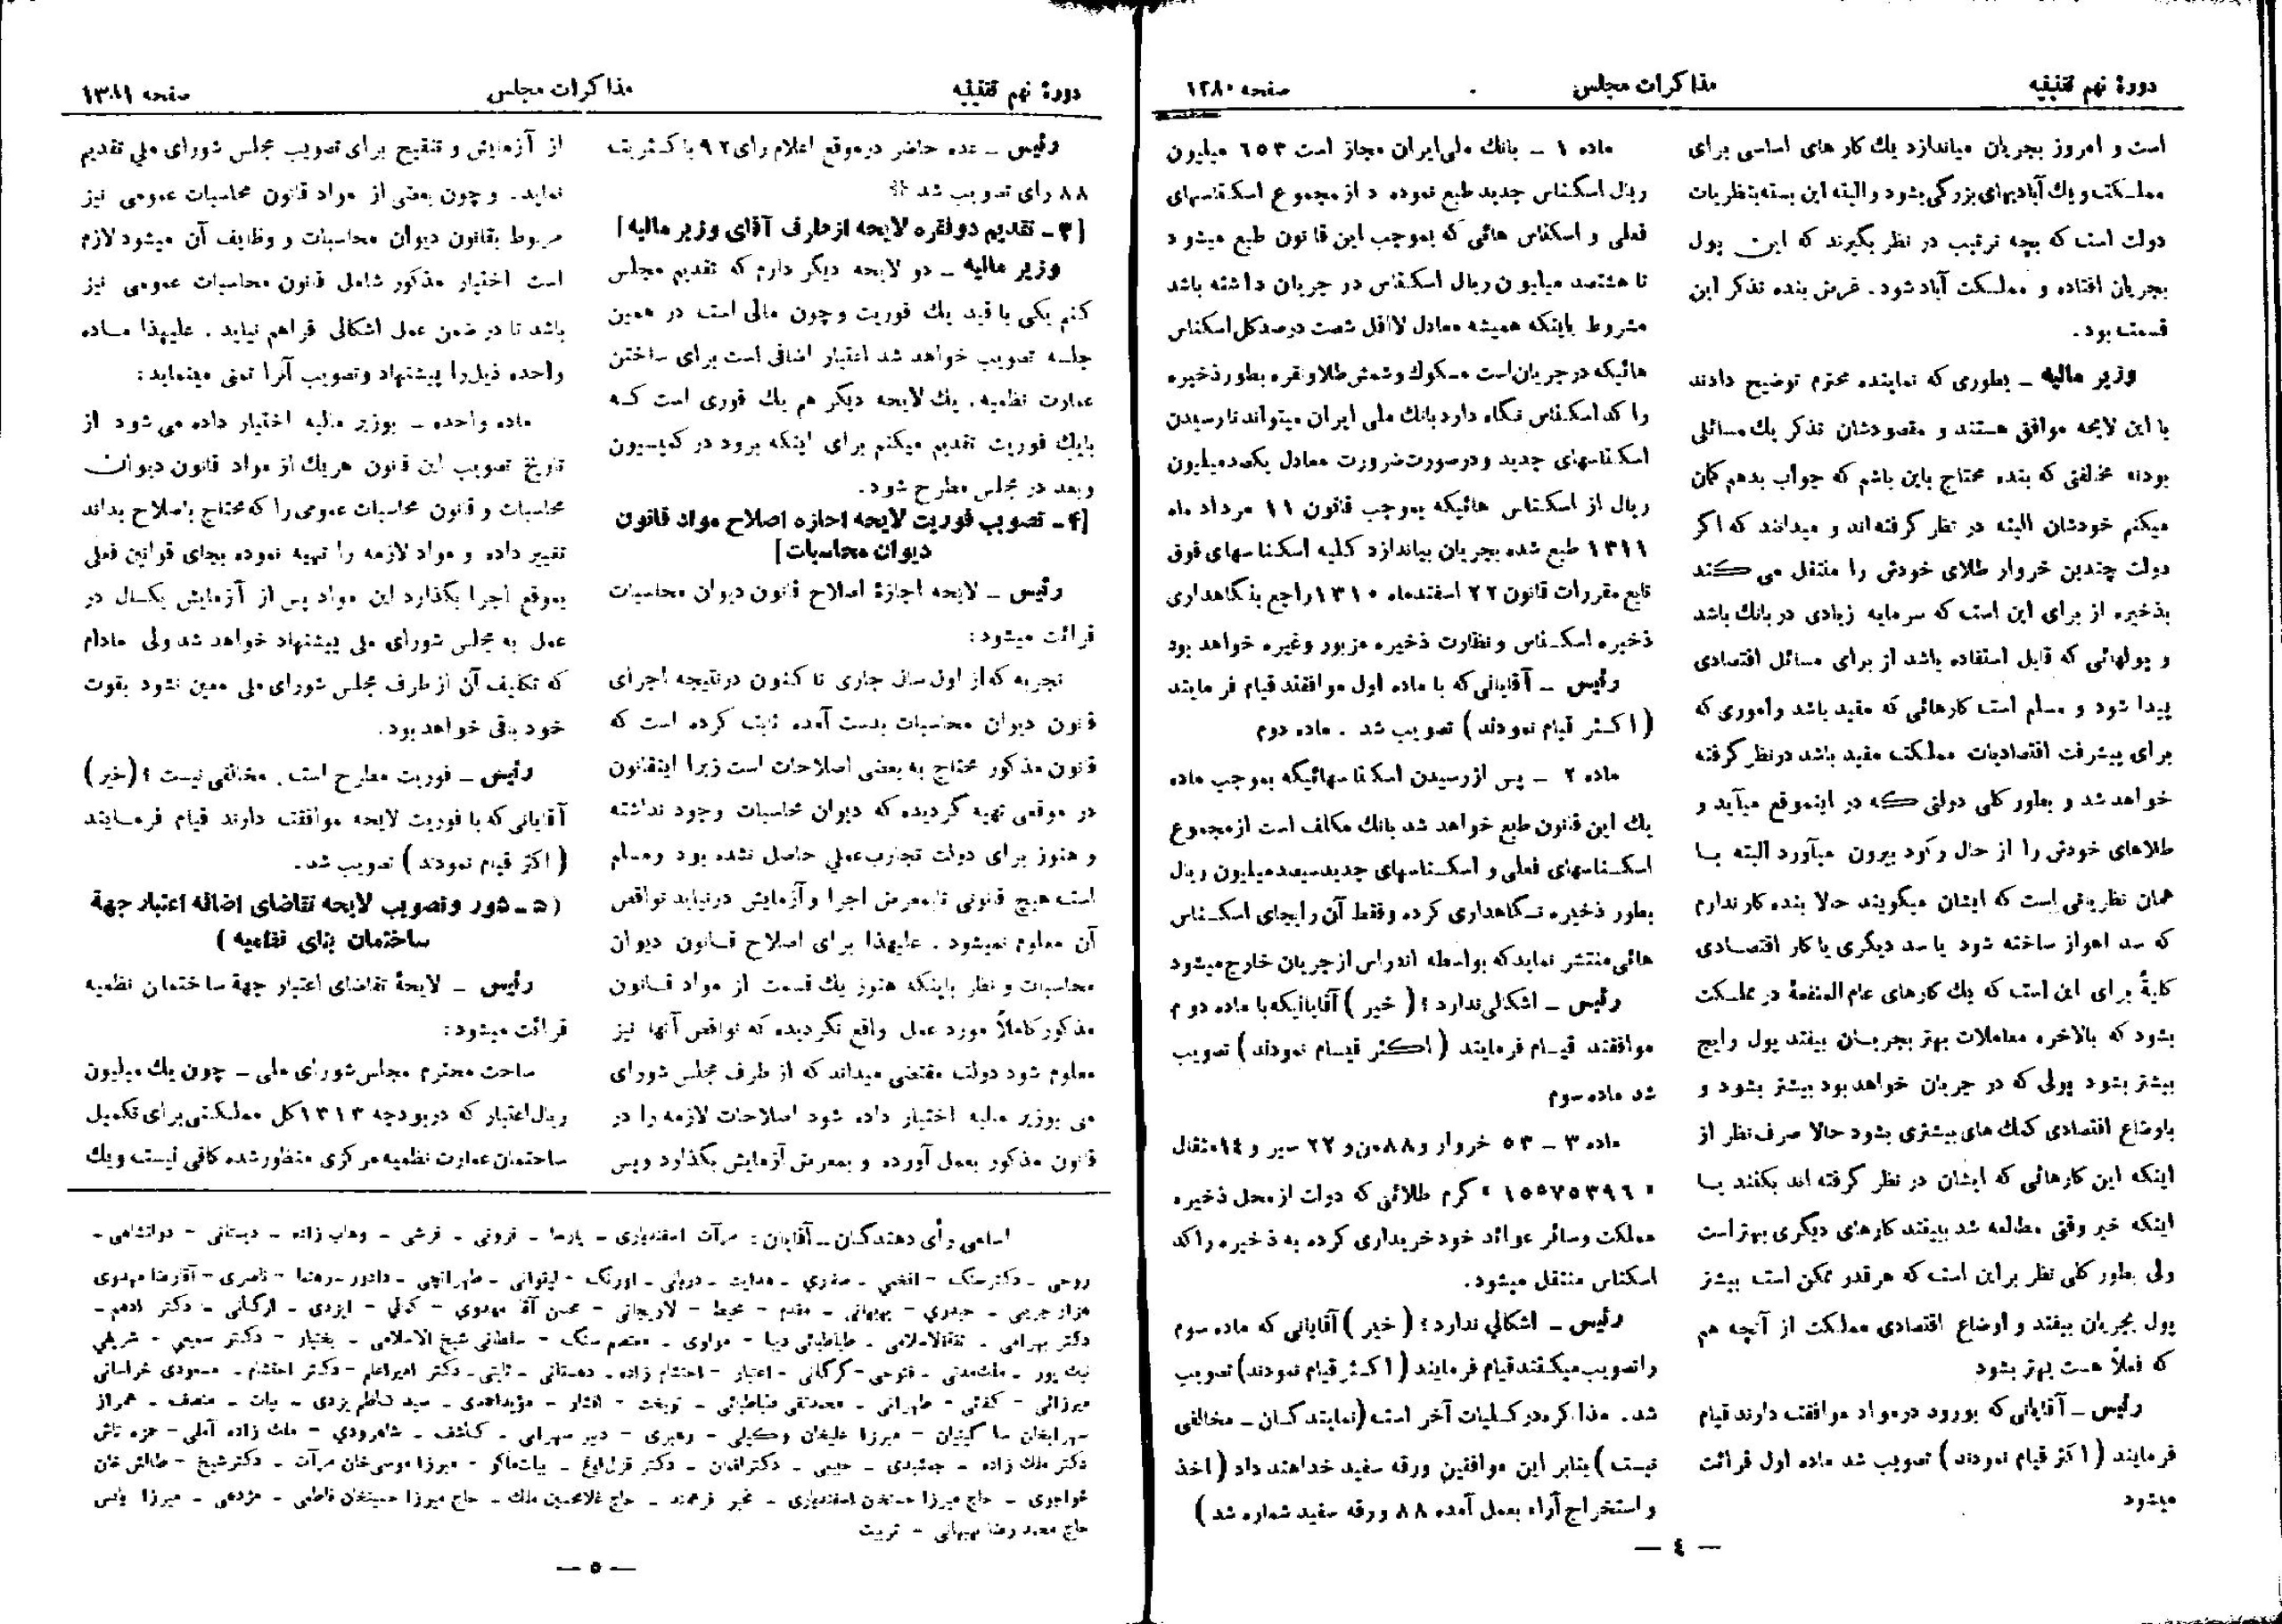 دورهٔ نهم تقنینیه
مذاکرات مجلس
صفحه ۱۲۸۰
است و امروز بجریان میاندازد یك کار های اساسی برای
مملکت و یك آبادیهای بزرگی بشود و البته این بسته بنظریات
دولت است که بچه ترتیب در نظر بگیرند که این پول
بجریان افتاده و مملکت آباد شود. غرض بنده تذکر این
قسمت بود.
وزیر مالیه ـ بطوری که نماینده محترم توضیح دادند
با این لایحه موافق هستند و مقصودشان تذکر یك مسائلی
بوده مخالفتی که بنده محتاج باین باشم که جواب بدهم گمان
میکنم خودشان البته در نظر گرفته‌اند و میدانند که اگر
دولت چندین خروار طلای خودش را منتقل می کند
بذخیره از برای این است که سرمایه زیادی در بانك باشد
و پولهائی که قابل استفاده باشد از برای مسائل اقتصادی
پیدا شود و مسلم است کارهائی که مفید باشد و اموری که
برای پیشرفت اقتصادیات مملکت مفید باشد در نظر گرفته
خواهد شد و بطور کلی دولتی که در اینموقع میآید و
طلاهای خودش را از حال رکود بیرون میآورد البته بـا
همان نظریاتی است که ایشان میگویند حالا بنده کار ندارم
که سد اهواز ساخته شود یا سد دیگری یا کار اقتصـادی
کلیةً برای این است که یك کارهای عام المنفعهٔ در مملکت
بشود که بالاخره معاملات بهتر بجریـان بیفتد پول رایج
بیشتر بشود پولی که در جریان خواهد بود بیشتر بشود و
باوضاع اقتصادی کمك های بیشتری بشود حالا صرف نظر از
اینکه این کارهائی که ایشان در نظر گرفته اند بکنند بـا
اینکه خیر وقتی مطالعه شد ببینند کارهای دیگری بهتر است
ولی بطور کلی نظر بر این است که هر قدر ممکن است بیشتر
پول بجریان بیفتد و اوضاع اقتصادی مملکت از آنچه هم
که فعلاً هست بهتر بشود
رئیس ـ آقایانی که بورود در مواد موافقت دارند قیام
فرمایند (اکثر قیام نمودند) تصویب شد ماده اول قرائت
میشود
ماده ۱ ـ بانك ملی ایران مجاز است ٦٥۳ میلیون
ریال اسکناس جدید طبع نموده و از مجموع اسکناسهای
فعلی و اسکناس هائی که بموجب این قانون طبع میشود
تا هشتصد میلیون ریال اسکناس در جریان داشته باشد
مشروط باینکه همیشه معادل لااقل شصت درصد کل اسکناس
هائیکه در جریان است مسکوك و شمش طلا و نقره بطور ذخیره
را کد اسکناس نگاه دارد بانك ملی ایران میتواند تا رسیدن
اسکناسهای جدید و در صورت ضرورت معادل یکصد میلیون
ریال از اسکناس هائیکه بموجب قانون ۱۱ مرداد ماه
۱۳۱۱ طبع شده بجریان بیاندازد کلیه اسکناسهای فوق
تابع مقررات قانون ۲۲ اسفندماه ۱۳۱۰ راجع بنگاهداری
ذخیره اسکناس و نظارت ذخیره مزبور وغیره خواهد بود
رئیس ـ آقایانی که با ماده اول موافقند قیام فرمایند
(اکثر قیام نمودند) تصویب شد . ماده دوم
ماده ۲ ـ پس از رسیدن اسکناسهائیکه بموجب ماده
یك این قانون طبع خواهد شد بانك مکلف است از مجموع
اسکناسهای فعلی و اسکناسهای جدید سیصد میلیون ریال
بطور ذخیره نگاهداری کرده و فقط آن را بجای اسکناس
هائی منتشر نماید که بواسطه اندراس از جریان خارج میشود
رئیس ـ اشکالی ندارد؟ (خیر) آقایانیکه با ماده دوم
موافقند قیـام فرمایند (اکثر قیـام نمودند) تصویب
شد ماده سوم
ماده ۳ ـ ۵۳ خروار و ۸۸ من و ۲۲ سیر و ۱٤ مثقال
« ۱٥٥۷٥۳۹٦ » گرم طلائی که دولت از محل ذخیره
مملکت وسائر عوائد خود خریداری کرده به ذخیره راکد
اسکناس منتقل میشود.
رئیس ـ اشکالی ندارد؟ (خیر) آقایانی که ماده سوم
را تصویب میکنند قیام فرمایند (اکثر قیام نمودند) تصویب
شد. مذاکره در کلیات آخر است (نمایندگان ـ مخالفی
نیست) بنابر این موافقین ورقه سفید خداهند داد (اخذ
و استخراج آراء بعمل آمده ۸۸ ورقه سفید شماره شد)
— ٤ —
دورهٔ نهم تقنینیه
مذاکرات مجلس
صفحه
رئیس ـ عده حاضر در موقع اعلام رای ۹۲ با کثریت
۸۸ رای تصویب شد ※
[۳ـ تقدیم دوفقره لایحه از طرف آقای وزیر مالیه]
وزیر مالیه ـ دو لایحه دیگر دارم که تقدیم مجلس
کنم یکی با قید یك فوریت و چون مالی است در همین
جلسه تصویب خواهد شد اعتبار اضافی است برای ساختن
عمارت نظمیه. یك لایحه دیگر هم یك فوری است کـه
بایك فوریت تقدیم میکنم برای اینکه برود در کمیسیون
و بعد در مجلس مطرح شود.
[۴ـ تصویب فوریت لایحه اجازه اصلاح مواد قانون
دیوان محاسبات]
رئیس ـ لایحه اجازهٔ اصلاح قانون دیوان محاسبات
قرائت میشود:
تجربه که از اول سال جاری تا کنون در نتیجه اجرای
قانون دیوان محاسبات بدست آمده ثابت کرده است که
قانون مذکور محتاج به بعضی اصلاحات است زیرا اینقانون
در موقعی تهیه گردیده که دیوان محاسبات وجود نداشته
و هنوز برای دولت تجارب عملی حاصل نشده بود ومسلم
است هیچ قانونی تا بمعرض اجرا و آزمایش درنیاید نواقص
آن معلوم نمیشود. علیهذا برای اصلاح قـانون دیوان
محاسبات و نظر باینکه هنوز یك قسمت از مواد قـانون
مذکور کاملاً مورد عمل واقع نگردیده که نواقص آنها نیز
معلوم شود دولت مقتضی میداند که از طرف مجلس شورای
ملی بوزیر مالیه اختیار داده شود اصلاحات لازمه را در
قانون مذکور بعمل آورده و بمعرض آزمایش بگذارد وپس
از آزمایش و تنقیح برای تصویب مجلس شورای ملی تقدیم
نماید. و چون بعضی از مواد قانون محاسبات عمومی نیز
مربوط بقانون دیوان محاسبات و وظایف آن میشود لازم
است اختیار مذکور شامل قانون محاسبات عمومی نیز
باشد تا در ضمن عمل اشکالی فراهم نیاید. علیهذا مـاده
واحده ذیل را پیشنهاد وتصویب آنرا تمنی مینماید:
ماده واحده ـ بوزیر مالیه اختیار داده می شود از
تاریخ تصویب این قانون هریك از مواد قانون دیوان
محاسبات و قانون محاسبات عمومی را که محتاج باصلاح بداند
تغییر داده و مواد لازمه را تهیه نموده بجای قوانین فعلی
بموقع اجرا بگذارد این مواد پس از آزمایش یکسال در
عمل به مجلس شورای ملی پیشنهاد خواهد شد ولی مادام
که تکلیف آن از طرف مجلس شورای ملی معین نشود بقوت
خود باقی خواهد بود.
رئیس ـ فوریت مطرح است. مخالفی نیست؟ (خیر)
آقایانی که با فوریت لایحه موافقت دارند قیام فرمـایند
(اکثر قیام نمودند) تصویب شد.
(۵ـ شور وتصویب لایحه تقاضای اضافه اعتبار جهة
ساختمان بنای نظمیه)
رئیس ـ لایحهٔ تقاضای اعتبار جهة ساختمان نظمیه
قرائت میشود:
ساحت محترم مجلس شورای ملی ـ چون یك میلیون
ریال اعتبار که در بودجه ۱۳۱۳ کل مملکتی برای تکمیل
ساختمان عمارت نظمیه مرکزی منظور شده کافی نیست و یك
اسامی رأی دهندگان ـ آقایان: مرآت اسفندیاری ـ پارسا ـ قزونی ـ قرشی ـ وهاب زاده ـ دبستانی ـ دولتشاهی ـ
روحی ـ دکتر سنك ـ افخمی ـ صفری ـ هدایت ـ دربانی ـ اورنگ ـ لیقوانی ـ طهرانچی ـ دادور ـ رهنما ـ ناصری ـ آقا رضا مهدوی
هزارجریبی ـ حیدری ـ بهبهانی ـ مقدم ـ محیط ـ لاریجانی ـ محسن آقا مهدوی ـ کمالی ـ ایزدی ـ ارگانی ـ دکتر ادهم ـ
دکتر بهرامی ـ ثقةالاسلامی ـ طباطبائی دیبا ـ مولوی ـ معتصم سنگ ـ سلطانی شیخ الاسلامی ـ بختیار ـ دکتر سمیعی ـ شریفی
نیك پور ـ ملك مدنی ـ فتوحی ـ گرگانی ـ اعتبار ـ احتشام زاده ـ دهستانی ـ ثابتی ـ دکتر امیراعلم ـ دکتر احتشام ـ مسعودی خراسانی
میرزائی ـ کفائی ـ طهرانی ـ محمدتقی طباطبائی ـ نوبخت ـ افشار ـ مؤیداحمدی ـ سید کاظم یزدی ـ بیات ـ منصف ـ همراز
سهرابخان ساگینیان ـ میرزا علیخان وکیلی ـ رهبری ـ دبیر سهرابی ـ کاشف ـ شاهرودی ـ ملك زاده آملی ـ حمزه تاش
دکتر ملك زاده ـ جمشیدی ـ حبیبی ـ دکتر لقمان ـ دکتر قزل ایاغ ـ بیات ماکو ـ میرزا موسی خان مرآت ـ دکتر شیخ ـ طالش خان
خواجوی ـ حاج میرزا حسنخان اسفندیاری ـ مخبر فرهمند ـ حاج غلامحسین ملك ـ حاج میرزا حسینخان فاطمی ـ مژدهی ـ میرزا یانس
حاج محمد رضا بهبهانی ـ تربیت
— ٥ —